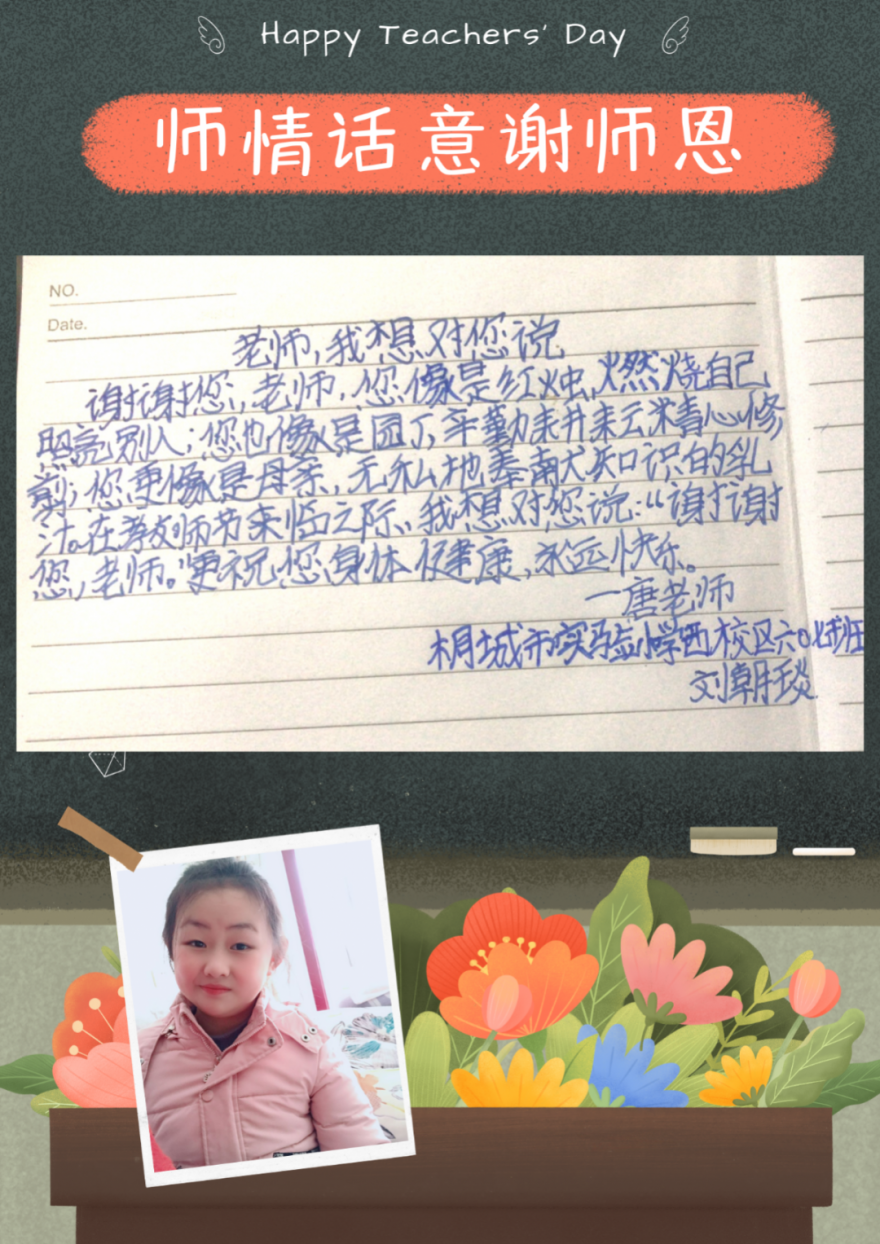 Happy Teachers' Day
师情话意谢师恩
NO.
Date.
老师,我想对您说
谢谢您,老师,您像是红烛,燃烧自己
照亮别人;您也像是园丁,辛勤耒升耒云米青心修
剪;您更像是母亲,无私地奉南犬知识的乳
汁。在教师节来临之际,我想对您说:“谢谢
您,老师。”更祝您身体健康,永远快乐。
一唐老师
桐城市实验小学西校区六0班
刘朝琰